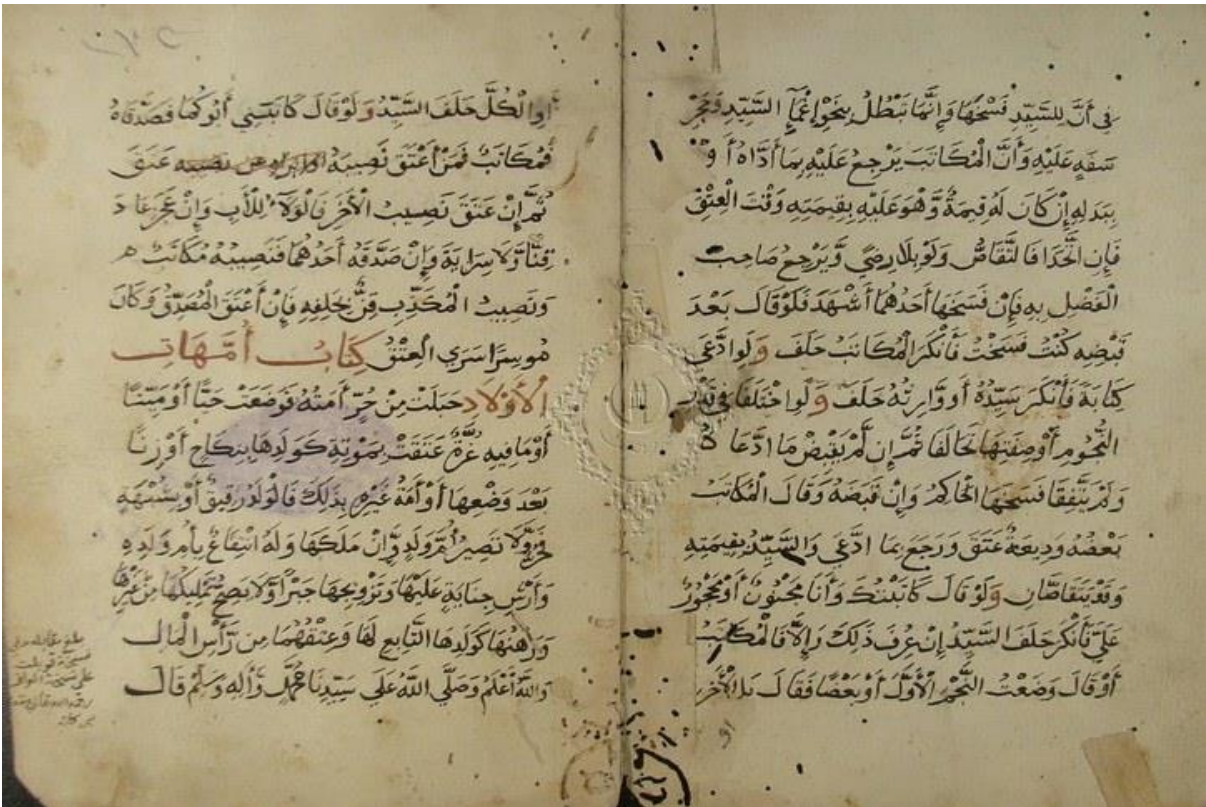 في أن للسيد فسخها وإنما تبطل بنحو إغماء السيد فحجر
سفه عليه وأن المكاتب يرجع عليه بما أداه أو
ببدله إن كان له قيمة وهو عليه بقيمته وقت العتق
فإن اتحدا فالتقاص ولو بلا رضي ويرجع صاحب
الفضل به فإن فسخها أحدهما أشهد فلو قال بعد
قبضه كنت فسخت فأنكر المكاتب حلف ولو ادعى
كتابة فأنكر سيده أو وارثه حلف ولو اختلفا في قدر
النجوم أو صفتها تحالفا ثم إن لم يقبض ما ادعاه
ولم يتفقا فسخها الحاكم وإن قبضه وقال المكاتب
بعضه وديعة عتق ورجع بما ادعى والسيد بقيمته
وقد يتقاصان ولو قال كاتبتك وأنا مجنون أو محجور
علي فأنكر حلف السيد إن عرف ذلك وإلا فالمكاتب
أو قال وضعت النجم الأول أو بعضا فقال بل الآخر
او
أو الكل حلف السيد ولو قال كاتبني أبوكما فصدقاه
فمكاتب فمن أعتق نصيبه نصيبه عتق
ثم إن عتق نصيب الآخر فالولاء للأب وإن عجز عاد
قنا ولا سراية وإن صدقه أحدهما فنصيبه مكاتب
ونصيب المكذب قن بحلفه فإن أعتق المصدق وكان
موسرا سرى العتق كتاب أمهات
الأولاد حبلت من حر أمته فوضعت حيا أو ميتا
أو ما فيه غرة عتقت بموته كولدها بنكاح أو زنا
بعد وضعها أو أمة غيره بذلك فالولد رقيق أو بشبهة
فحر ولا تصير أم ولد وإن ملكها وله انتفاع بأم ولده
وأرش جناية عليها وتزويجها جبرا ولا يصح تمليكها من غيرها
ورهنها كولدها التابع لها وعتقهما من رأس المال
والله أعلم وصلي الله على سيدنا محمد وآله وسلم قال